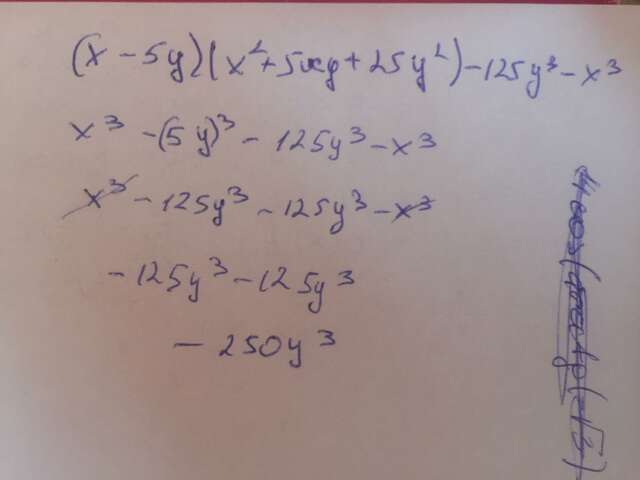 (x - 5y)(x² + 5xy + 25y²) - 125y³ - x³
x³ - (5y)³ - 125y³ - x³
x³ - 125y³ - 125y³ - x³
- 125y³ - 125y³
- 250y³